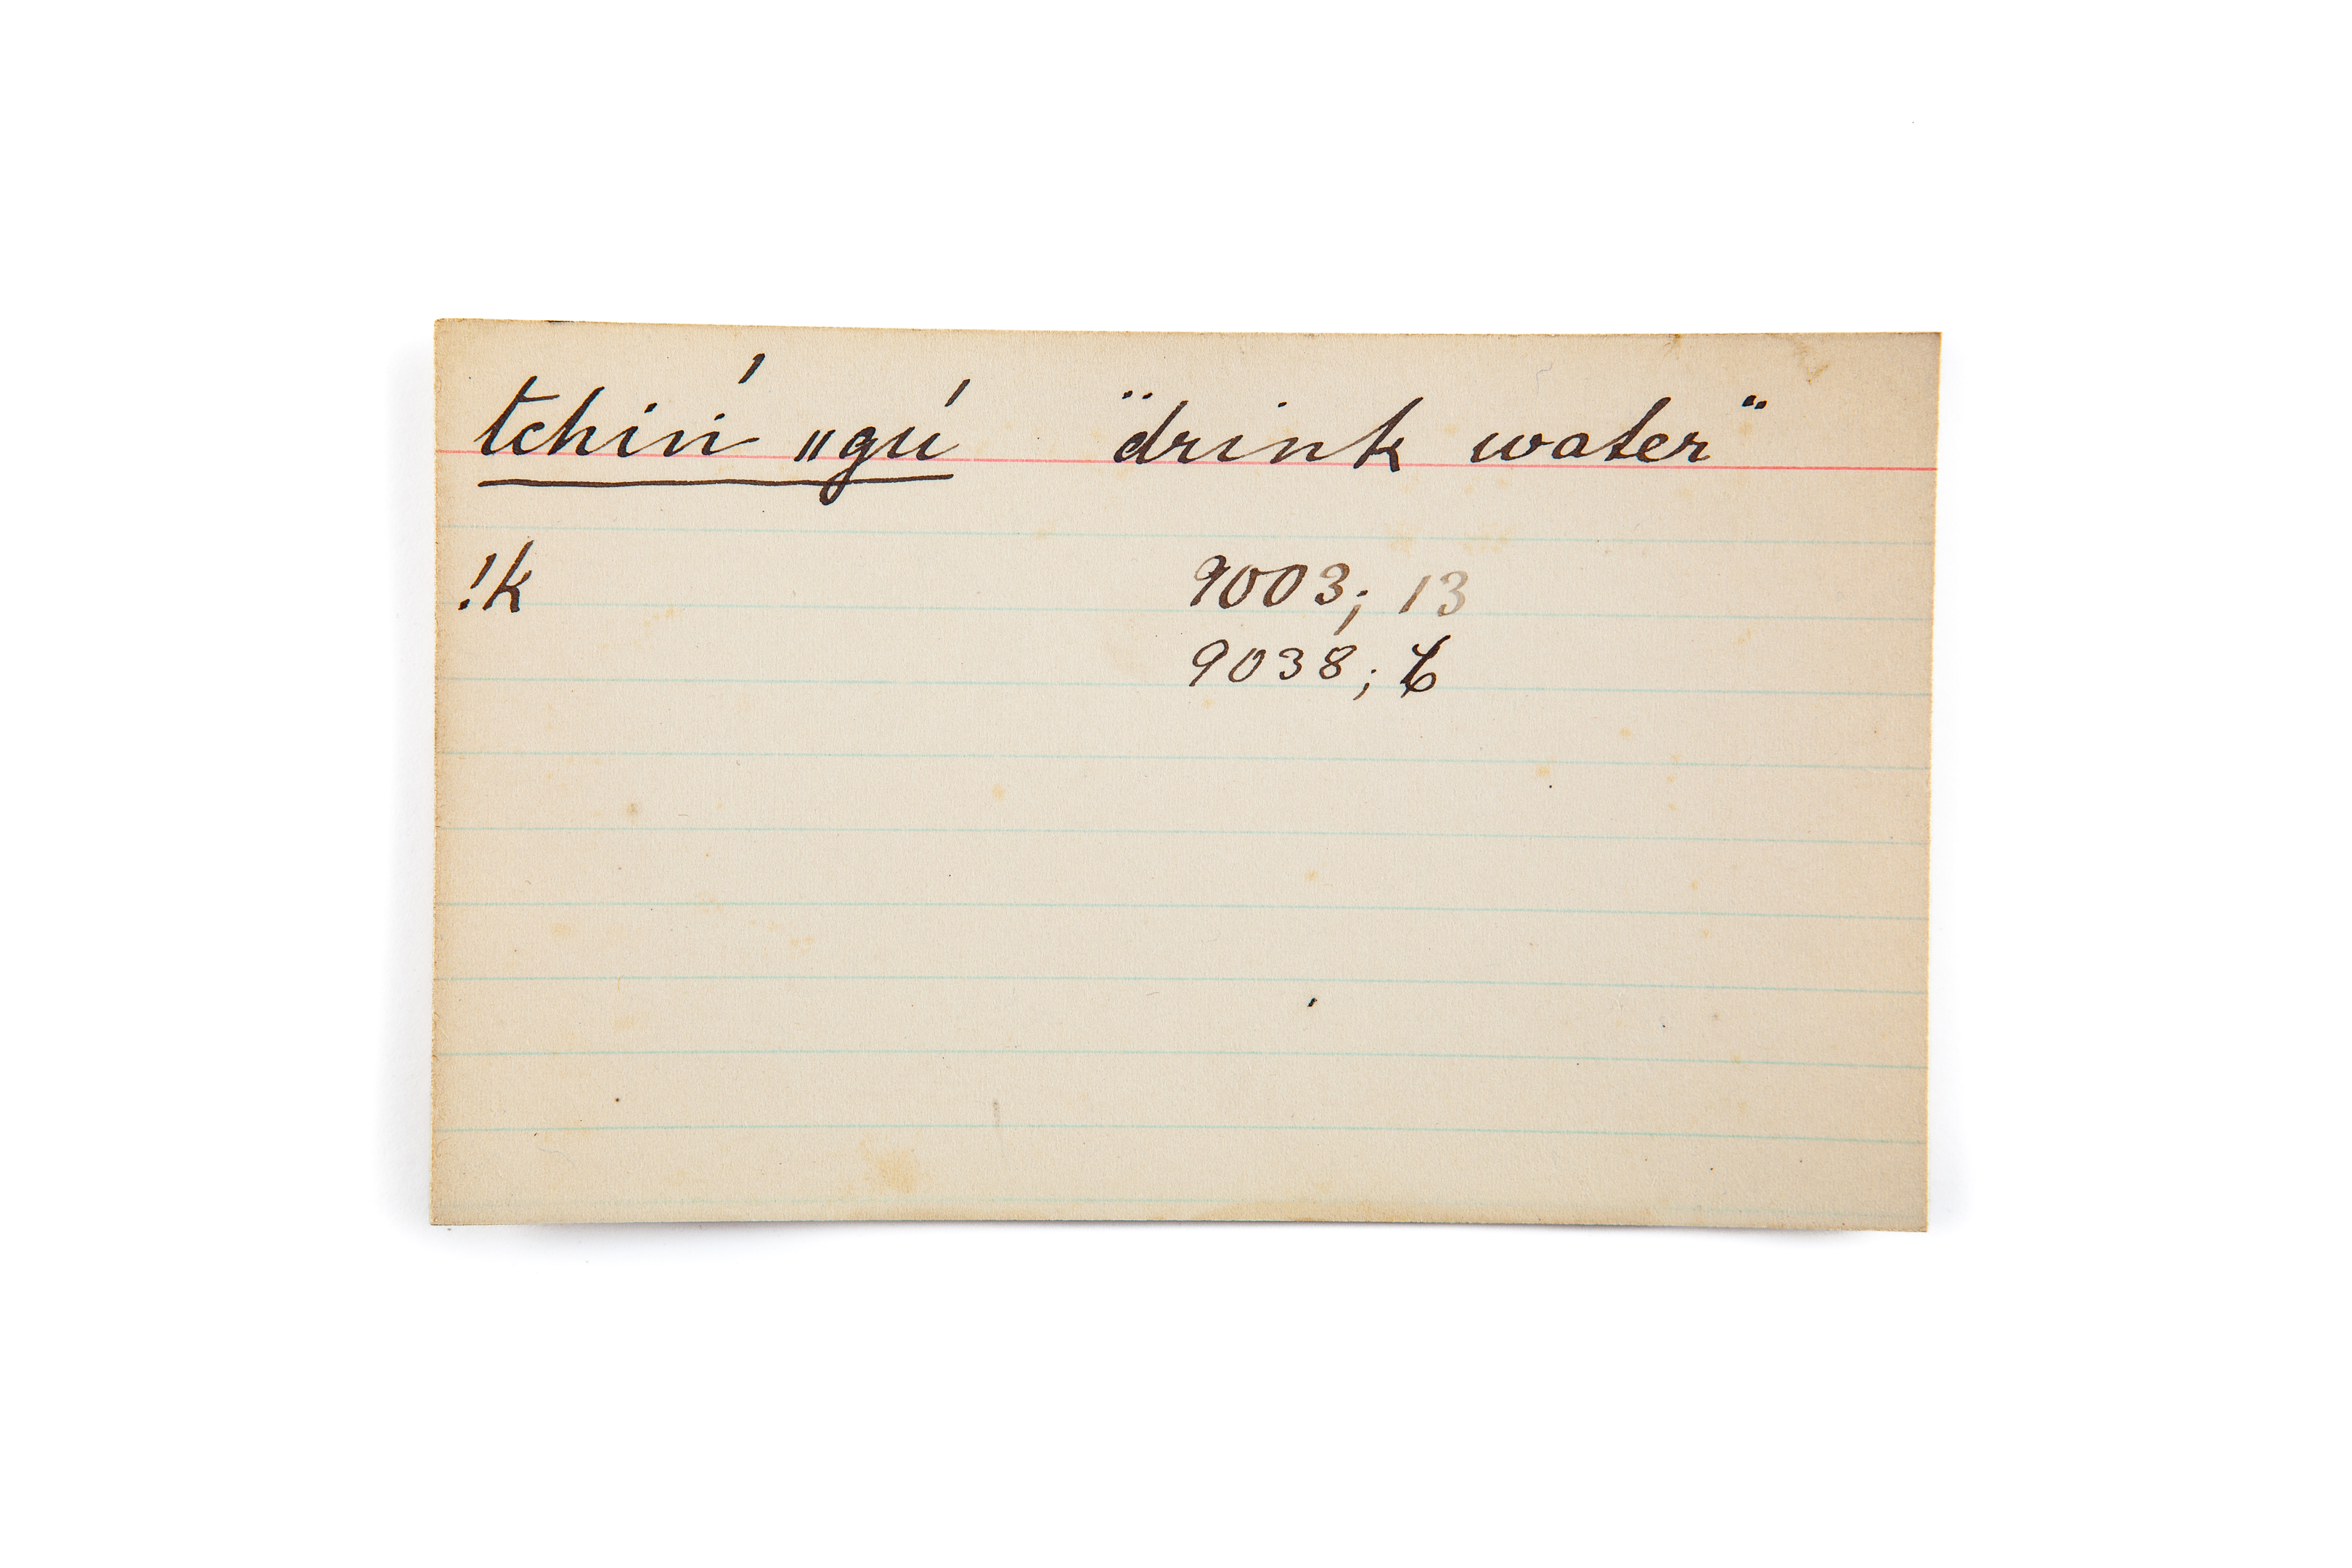 tchiṅ́ ıı gú "drink water"
!k 9003; 13
9038; 6